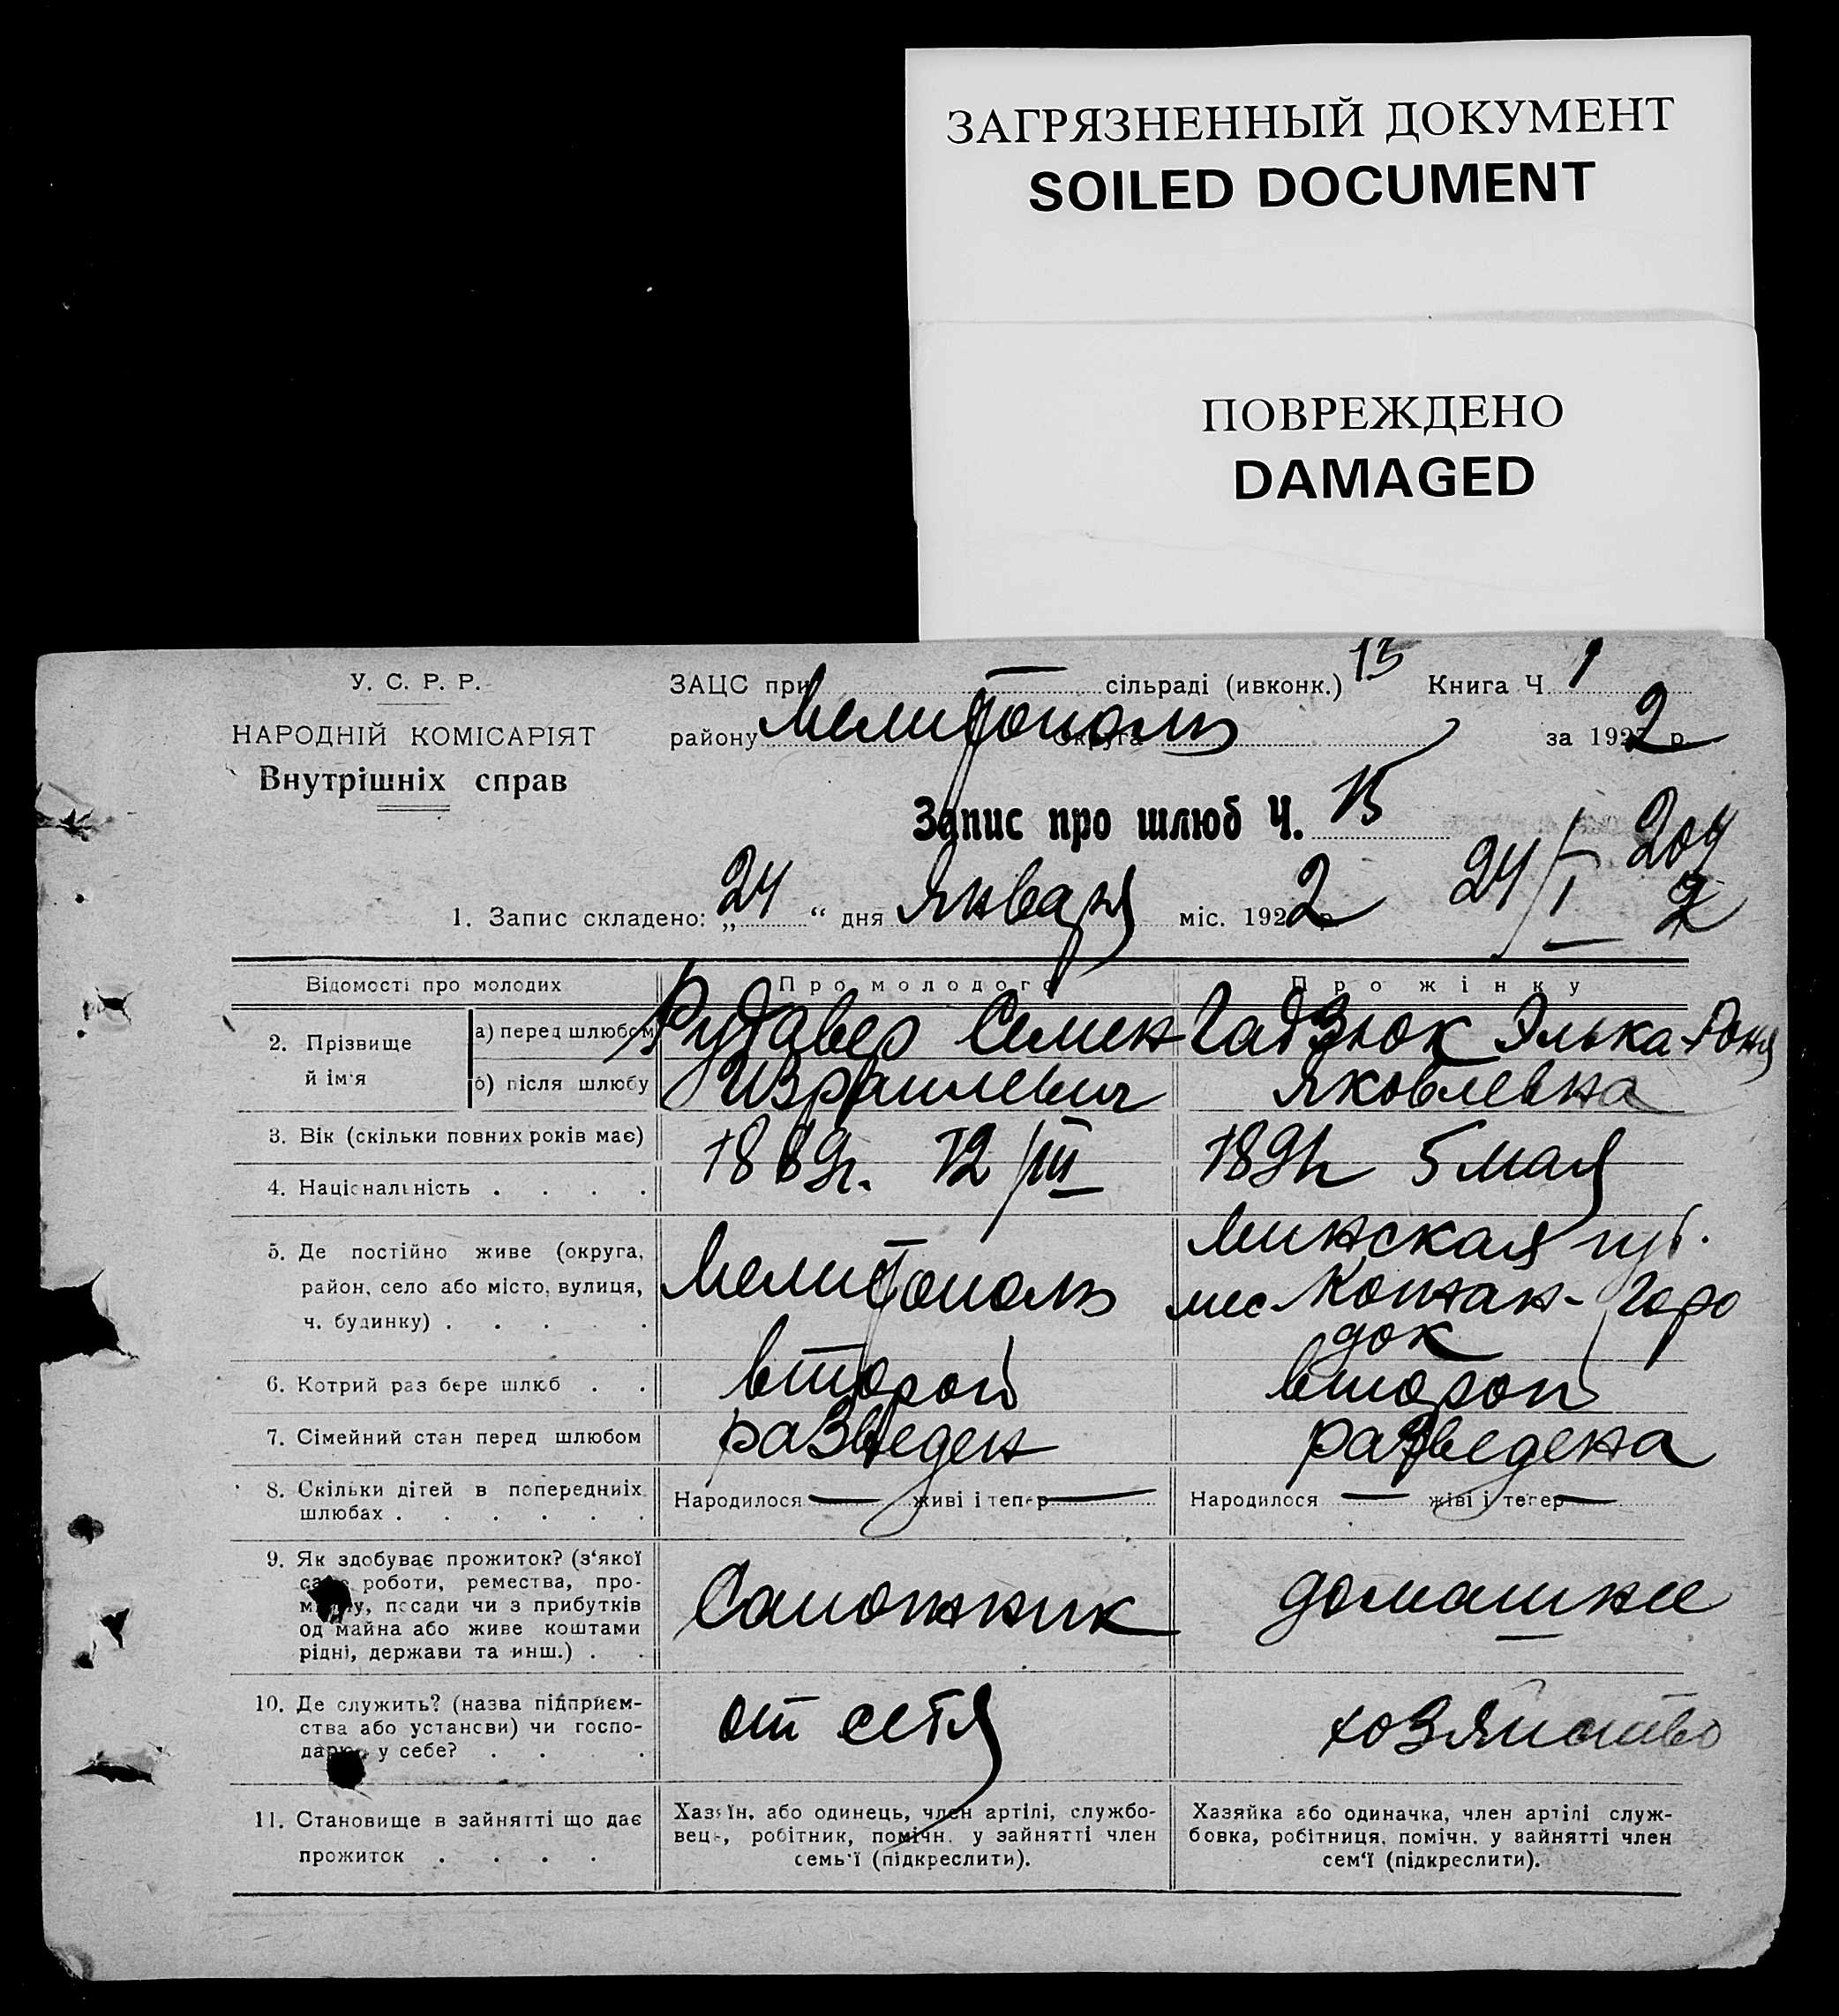 ЗАГРЯЗНЕННЫЙ ДОКУМЕНТ
SOILED DOCUMENT
ПОВРЕЖДЕНО
DAMAGED
У. С. Р. Р.
НАРОДНІЙ КОМІСАРІЯТ
Внутрішніх справ
ЗАЦС при сільраді (ивконк.) 13 Книга Ч. 1
району Мелитополь округа за 1922 р.
Запис про шлюб Ч. 13
24/I
1. Запис складено: „24“ дня Января міс. 1922 р.
Відомості про молодих
Про молодого
Про жінку
2. Прізвище й ім'я
а) перед шлюбом
б) після шлюбу
Рудавер Семен
Израилевич
Гадзюк Элька-
Яковлевна
3. Вік (скільки повних років має)
1889г. 12/III
189 5 мая
4. Національність . . . .
5. Де постійно живе (округа,
район, село або місто, вулиця,
ч. будинку) . . . . .
Мелитополь
Минская губ.
мес Кожан-Горо
док
6. Котрий раз бере шлюб . .
второй
второй
7. Сімейний стан перед шлюбом
разведен
разведена
8. Скільки дітей в попередніх
шлюбах . . . . . .
Народилося — живі і тепер —
Народилося — живі і тепер —
9. Як здобуває прожиток? (з'якої
роботи, ремества, про-
посади чи з прибутків
од майна або живе коштами
рідні, держави та инш.) . .
Сапожник
домашнее
10. Де служить? (назва підприєм-
ства або установи) чи госпо-
дарює у себе? . . . .
от себя
хозяйство
11. Становище в зайнятті що дає
прожиток . . . .
Хазяїн, або одинець, член артілі, службо-
вець, робітник, помічн. у зайнятті член
семь'ї (підкреслити).
Хазяйка або одиначка, член артілі служ-
бовка, робітниця, помічн. у зайнятті член
сем'ї (підкреслити).